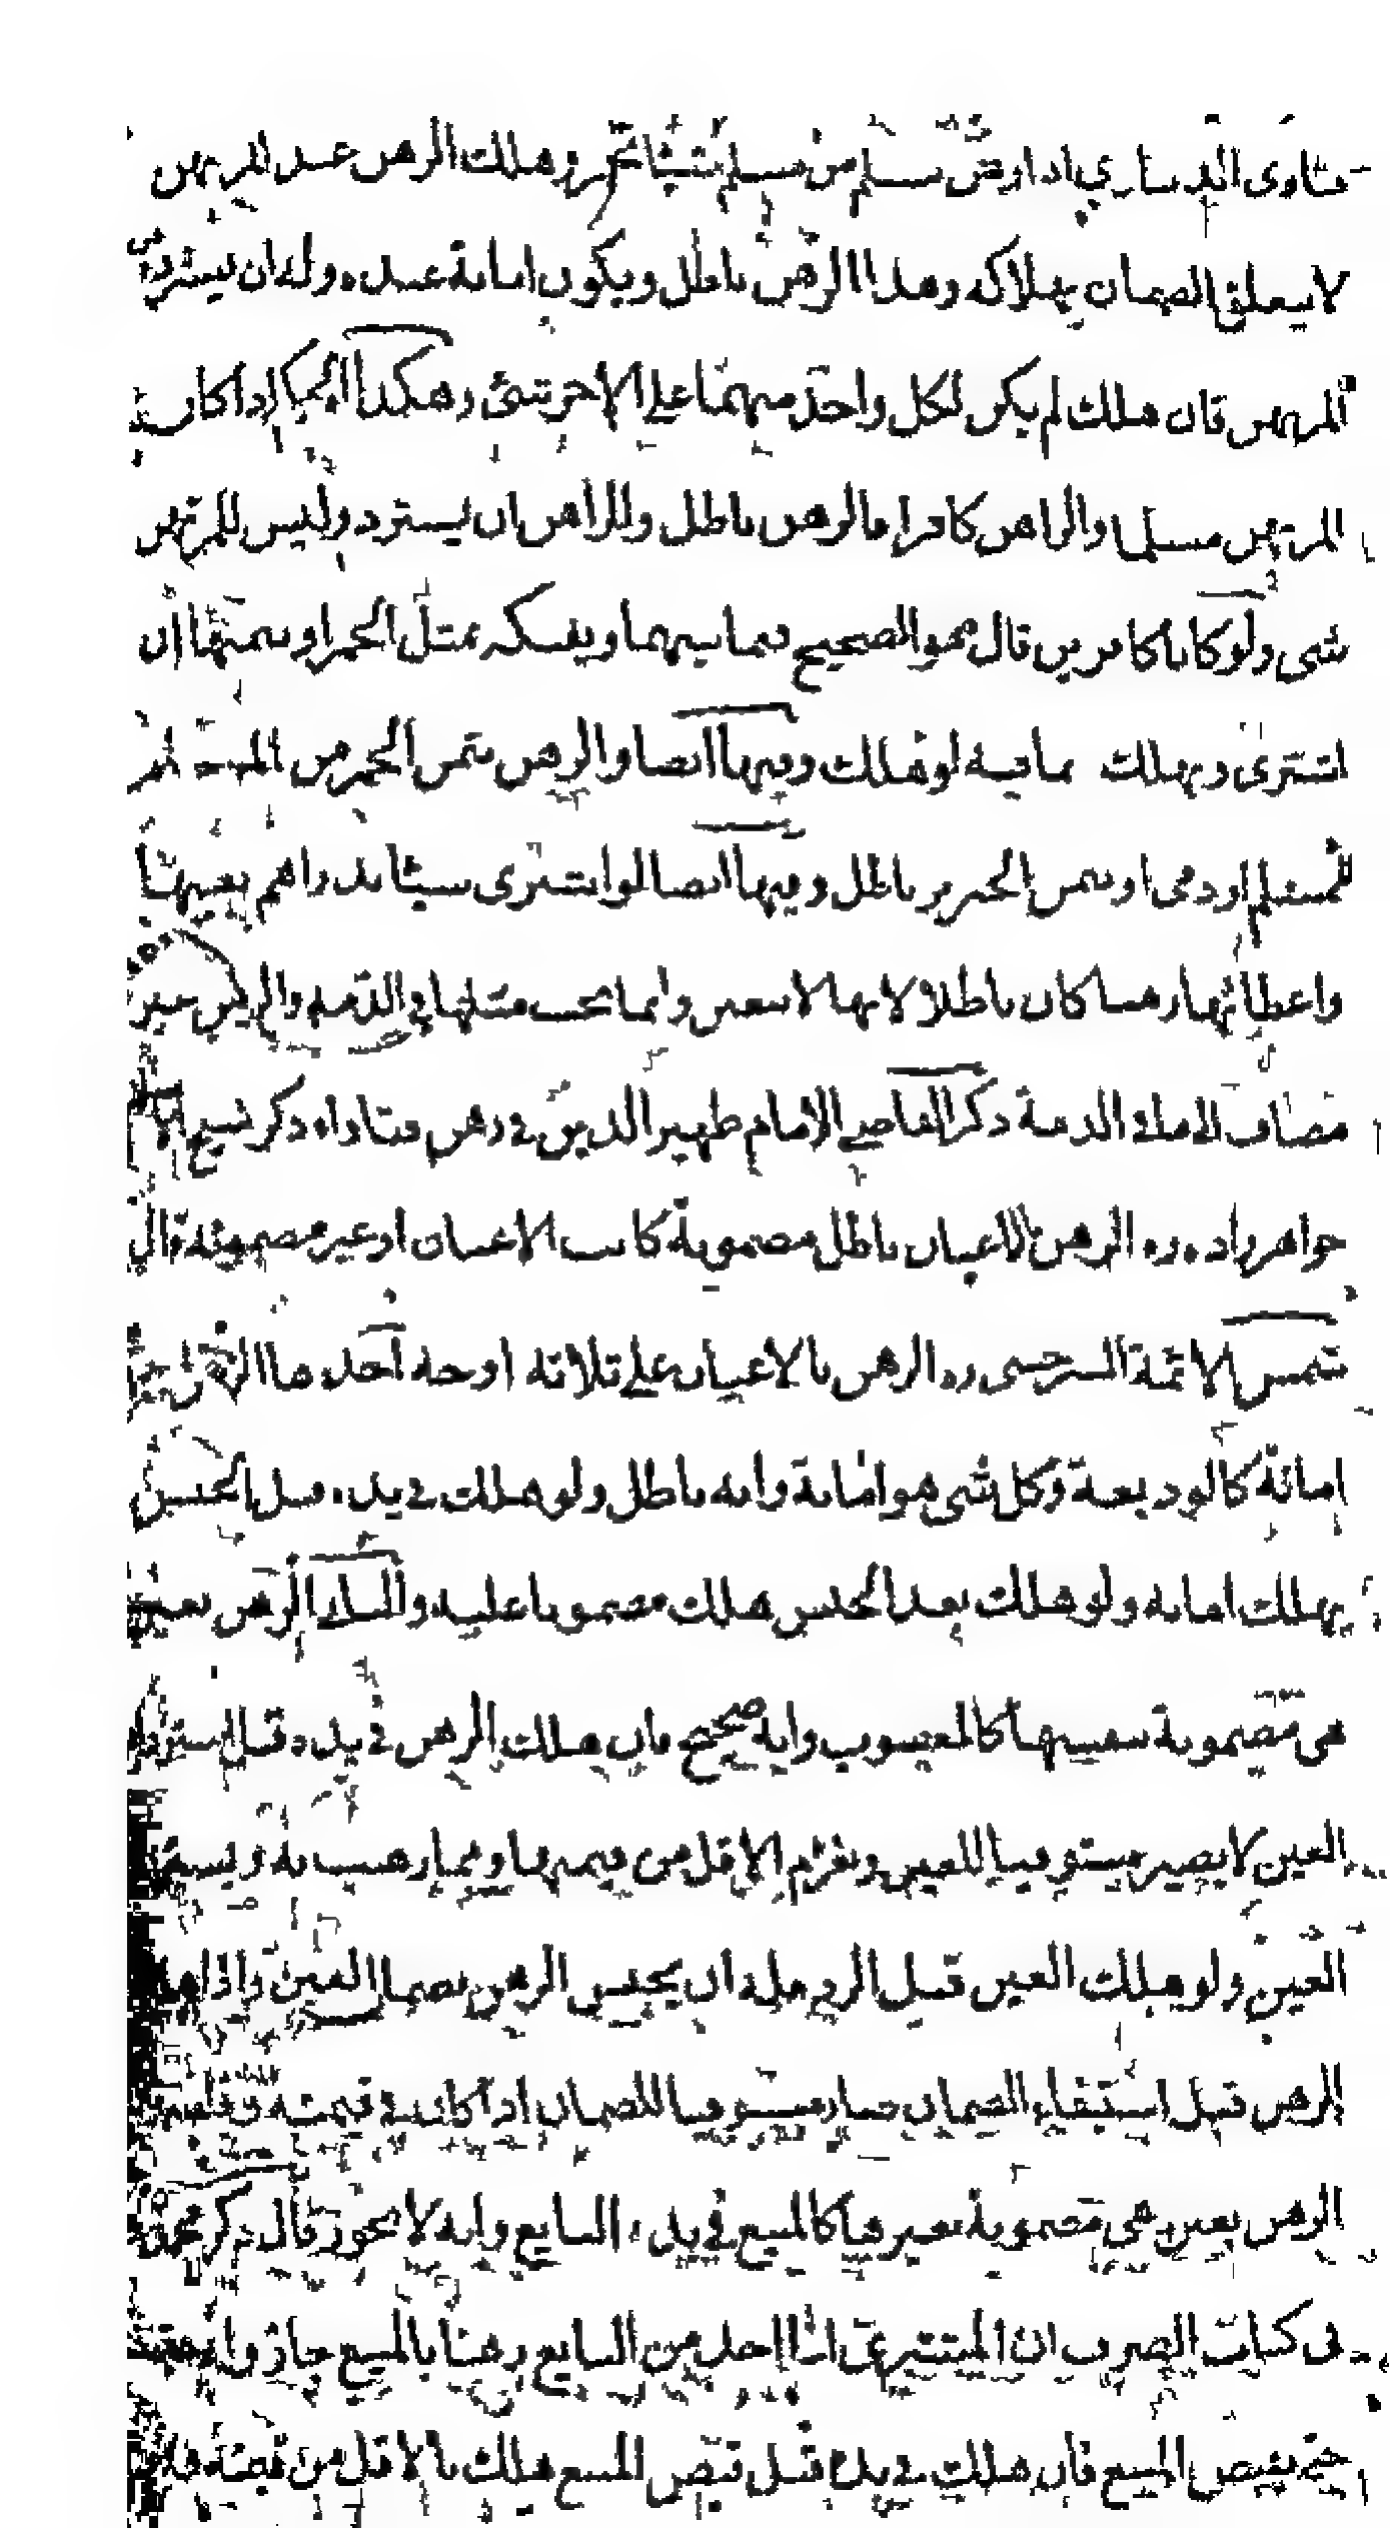 فتاوى الديناري اذا ارتهن مسلم من مسلم شيئا خمر وهلك الرهن عند المرتهن
لا يتعلق الضمان بهلاكه وهذا الرهن باطل ويكون امانة عنده وله ان يسترده من
المرتهن فان هلك لم يكن لكل واحد منهما على الاخر شئ وهكذا الحكم اذا كان
المرتهن مسلما والراهن كافرا فالرهن باطل وللراهن ان يسترد وليس للمرتهن
شى ولو كانا كافرين قال هو الصحيح فيما بينهما ويفتكه بمثل الخمر او بثمنها ان
اشترى ويهلك بما فيه لو هلك وفيها ايضا والرهن بثمن الخمر من المسلم
لمسلم او ذمى او بثمن الخنزير باطل وفيها ايضا لو اشترى شيئا بدراهم بعينها
واعطا بها رهنا كان باطلا لانها لا تتعين وانما يجب مثلها في الذمة والرهن غير
مضاف الى ما فى الذمة ذكر القاضي الامام ظهير الدين في رهن فتاواه ذكر شيخ الاسلام
جواهر زاده ره الرهن بالاعيان باطل مضمونة كانت الاعيان او غير مضمونة قال
شمس الائمة السرخسى ره الرهن بالاعيان على ثلاثة اوجه احدها الرهن بعين
امانة كالوديعة وكل شى هو امانة وانه باطل ولو هلك في يده قبل الحبس
يهلك امانة ولو هلك بعد الحبس هلك مضمونا عليه والثاني الرهن بعين
هى مضمونة بنفسها كالمغصوب وانه صحيح فان هلك الرهن في يده قبل استرداد
العين لا يصير مستوفيا للعين ويغرم الاقل من قيمتها ومما رهنت به ويسترد
العين ولو هلك العين قبل الرد فله ان يحبس الرهن بضمان العين واذا هلك
الرهن قبل استيفاء الضمان صار مستوفيا للضمان اذا كان في قيمته وفاء
الرهن بعين هى مضمونة بغيرها كالمبيع في يد البايع وانه لا يجوز قال ذكر محمد
فى كتاب الصرف ان المشترى اذا اخذ من البايع رهنا بالمبيع جاز
حتى يقبض المبيع فان هلك في يده قبل قبض المبيع هلك بالاقل من قيمته